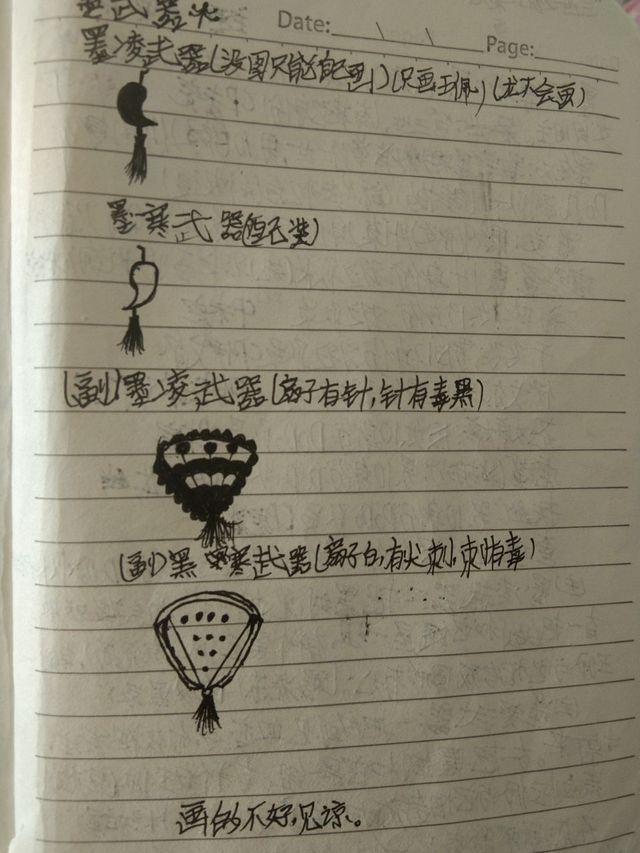 Date:
Page:
墨凌武器(没图只能自己画)(只画玉佩)(龙不会画)
墨寒武器(配套)
(副)墨凌武器(扇子有针,针有毒黑)
(副)黑 墨寒武器(扇子白,有尖刺,刺有毒)
画的不好,见谅。